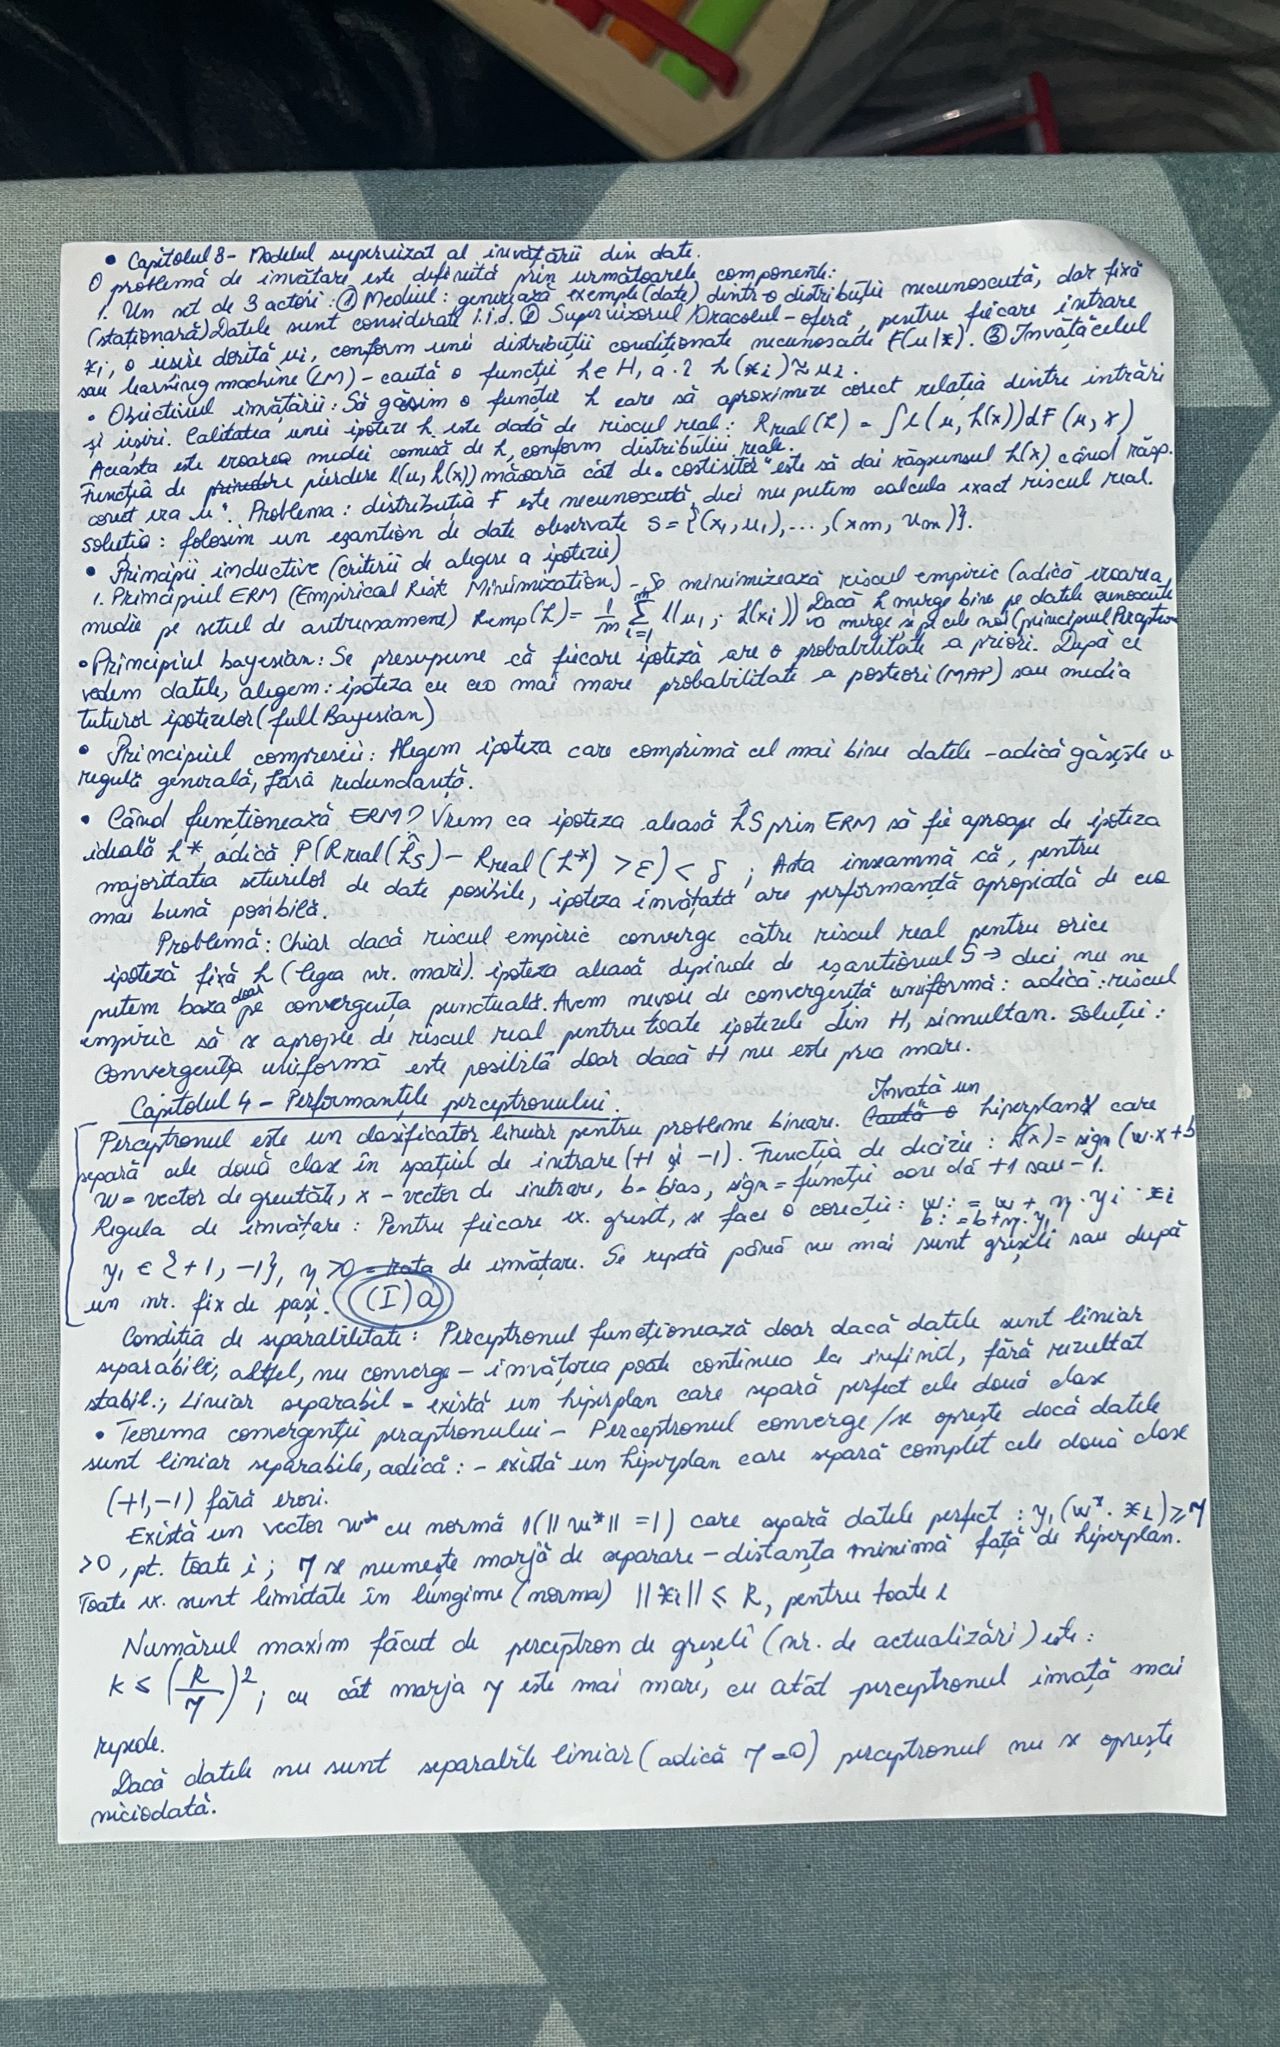 • Capitolul 8 - Modelul supervizat al învățării din date.
O problemă de învățare este definită prin următoarele componente:
1. Un set de 3 actori: ① Mediul: generează exemple (date) dintr-o distribuție necunoscută, dar fixă
(staționară) Datele sunt considerate i.i.d. ② Supervizorul/Oracolul - oferă, pentru fiecare intrare
xi, o ieșire dorită ui, conform unei distribuții condiționate necunoscute F(u|x). ③ Învățăcelul
sau learning machine (LM) - caută o funcție h∈H, a.î h(xi)≈ui.
• Obiectivul învățării: Să găsim o funcție h care să aproximeze corect relația dintre intrări
și ieșiri. Calitatea unei ipoteze h este dată de riscul real: Rreal(h) = ∫l(u, h(x))dF(u,x)
Aceasta este eroarea medie comisă de h, conform distribuției reale.
Funcția de pierdere l(u, h(x)) măsoară cât de "costisitor" este să dai răspunsul h(x) când răsp.
corect era u. Problema: distribuția F este necunoscută, deci nu putem calcula exact riscul real.
Soluția: folosim un eșantion de date observate S = {(x1, u1), ..., (xm, um)}.
• Principii inductive (criterii de alegere a ipotezei)
1. Principiul ERM (Empirical Risk Minimization) - Se minimizează riscul empiric (adică eroarea
medie pe setul de antrenament) Remp(h) = 1/m Σ i=1 m l(ui, h(xi)) Dacă h merge bine pe datele cunoscute
va merge și pe cele noi (principiul Perceptron
• Principiul bayesian: Se presupune că fiecare ipoteză are o probabilitate a priori. După ce
vedem datele, alegem: ipoteza cu cea mai mare probabilitate a posteori (MAP) sau media
tuturor ipotezelor (full Bayesian)
• Principiul compresiei: Alegem ipoteza care comprimă cel mai bine datele - adică găsește o
regulă generală, fără redundanță.
• Când funcționează ERM? Vrem ca ipoteza aleasă ĥS prin ERM să fie aproape de ipoteza
ideală h*, adică P(Rreal(ĥS) - Rreal(h*) > ε) < δ ; Asta inseamnă că, pentru
majoritatea seturilor de date posibile, ipoteza învățată are performanță apropiată de cea
mai bună posibilă.
Problemă: Chiar dacă riscul empiric converge către riscul real pentru orice
ipoteză fixă h (legea nr. mari). ipoteza aleasă depinde de eșantionul S → deci nu ne
putem baza doar pe convergența punctuală. Avem nevoie de convergență uniformă: adică: riscul
empiric să se apropie de riscul real pentru toate ipotezele din H, simultan. Soluție:
Convergența uniformă este posibilă doar dacă H nu este prea mare.
Capitolul 4 - Performanțele perceptronului.
Perceptronul este un clasificator liniar pentru probleme binare. Caută o Invață un hiperplan care
separă cele două clase în spațiul de intrare (+1 și -1). Funcția de decizie: h(x) = sign (w·x+b
w = vector de greutăți, x - vector de intrare, b = bias, sign = funcție care dă +1 sau -1.
Regula de învățare: Pentru fiecare ex. greșit, se face o corecție: w := w + η · yi · xi
b := b+η·yi
yi ∈ {+1, -1}, η > 0 = rata de învățare. Se repetă până nu mai sunt greșeli sau după
un nr. fix de pași. (I) a
Condiția de separabilitate: Perceptronul funcționează doar dacă datele sunt liniar
separabile, altfel, nu converge - învățarea poate continua la infinit, fără rezultat
stabil.; Liniar separabil = există un hiperplan care separă perfect cele două clase
• Teorema convergenții perceptronului - Perceptronul converge/se oprește dacă datele
sunt liniar separabile, adică: - există un hiperplan care separă complet cele două clase
(+1, -1) fără erori.
Există un vector w* cu normă 1 (||w*|| = 1) care separă datele perfect: yi(w*·xi) ≥ γ
> 0, pt. toate i; γ se numește marjă de separare - distanța minimă față de hiperplan.
Toate ex. sunt limitate în lungime (norma) ||xi|| ≤ R, pentru toate i
Numărul maxim făcut de perceptron de greșeli (nr. de actualizări) este:
k ≤ (R/γ)²; cu cât marja γ este mai mare, cu atât perceptronul învață mai
repede.
Dacă datele nu sunt separabile liniar (adică γ=0) perceptronul nu se oprește
niciodată.